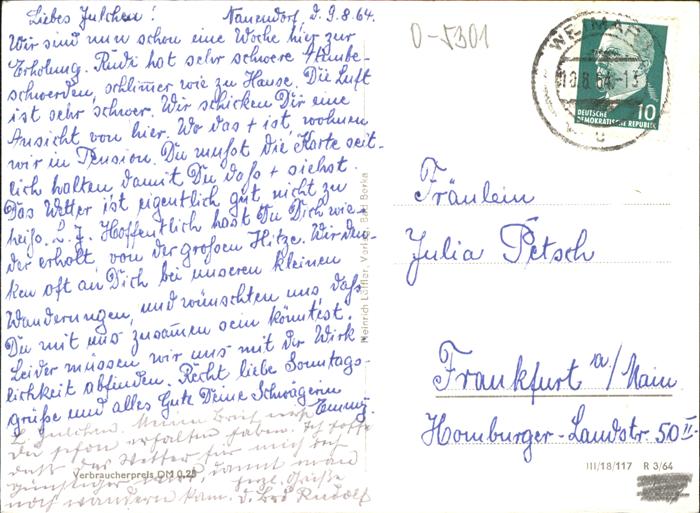 Liebes Julchen! Nauendorf, d. 9.8.64.
Wir sind nun schon eine Woche hier zur
Erholung. Rudi hat sehr schwere Atembe-
schwerden, schlimmer wie zu Hause. Die Luft
ist sehr schwer. Wir schicken Dir eine
Ansicht von hier. Wo das + ist, wohnen
wir in Pension. Du mußt die Karte seit-
lich halten damit Du daß + siehst.
Das Wetter ist eigentlich gut nicht zu
heiß. L. J. Hoffentlich hast Du Dich wie-
der erholt von der großen Hitze. Wir den
ken oft an Dich bei unseren kleinen
Wanderungen, und wünschten uns daß
Du mit uns zusammen sein könntest.
Leider müssen wir uns mit der Wirk
lichkeit abfinden. Recht liebe Sonntags-
grüße und alles Gute Deine Schwägerin
Emmy.
L. Julchen. Meinen Brief wirst
Du schon erhalten haben. Ich hoffe
daß das Wetter für mich sich
günstiger damit man
noch wandern kann. herzl. Grüße d. Rudolf
Verbraucherpreis DM 0,25
Heinrich Löffler, Verlag, Bad Berka
O-5301
WEIMAR
10.8.64-13
DEUTSCHE
DEMOKRATISCHE REPUBLIK
10
Fräulein
Julia Petsch
Frankfurt a/Main
Homburger-Landstr. 50 II.
III/18/117 R 3/64